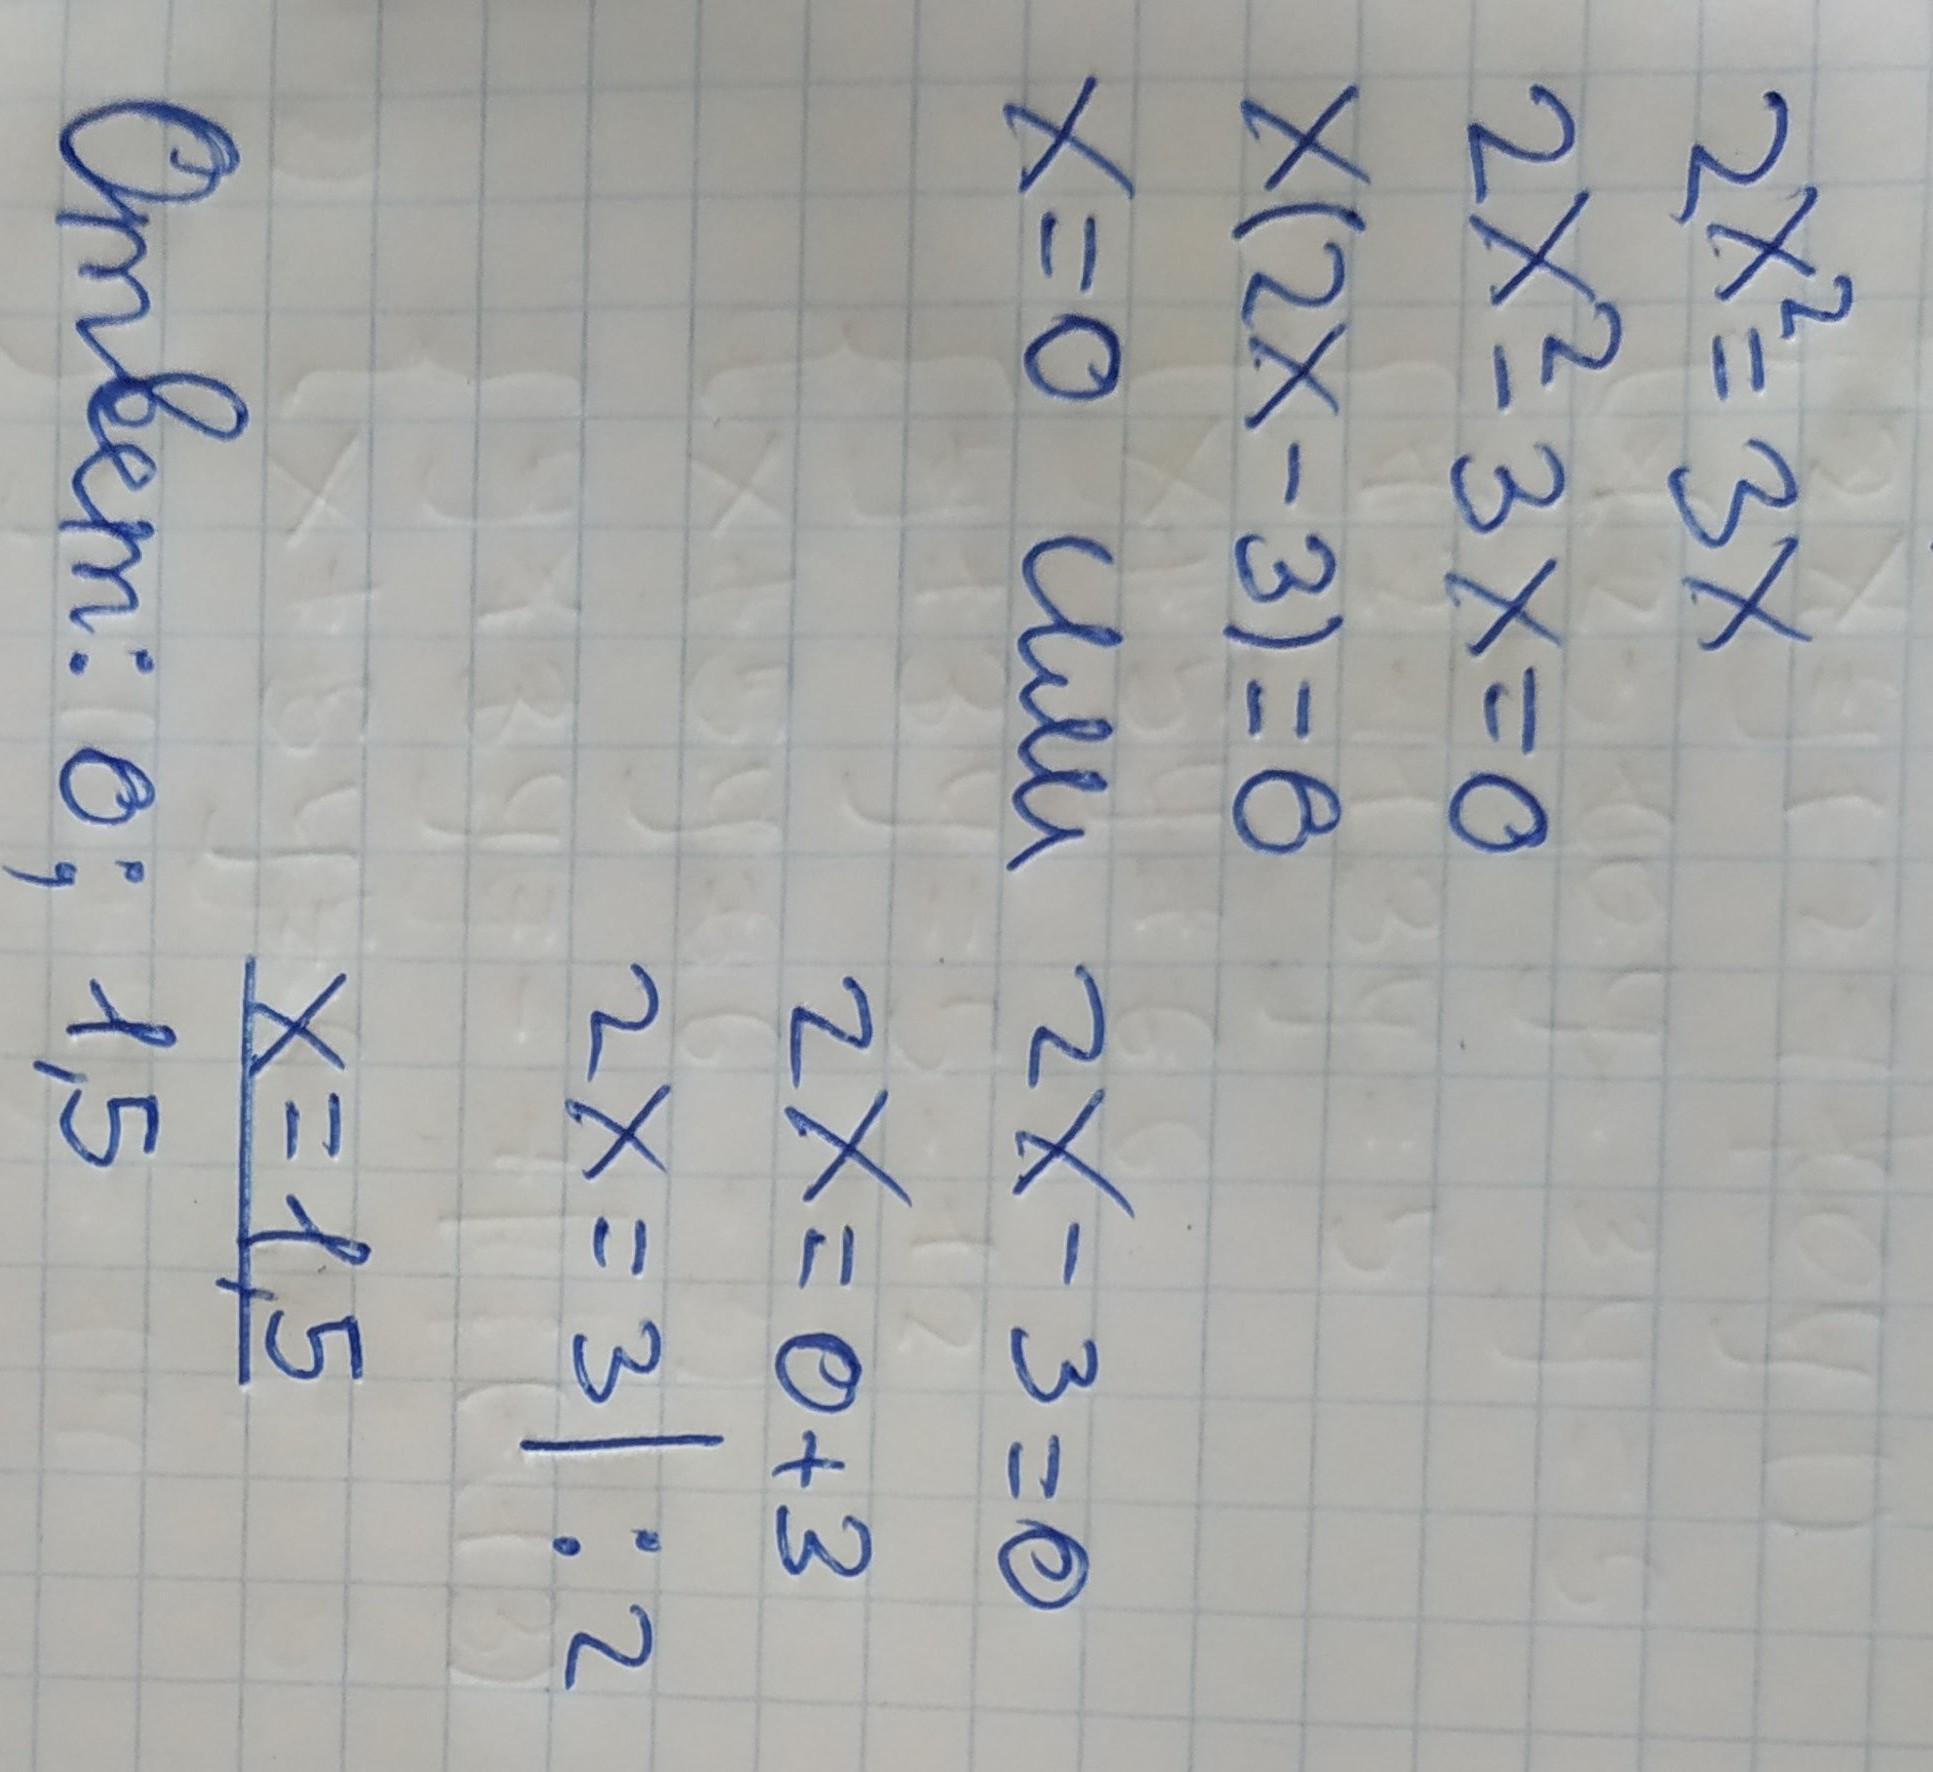 2x² = 3x
2x² - 3x = 0
x(2x - 3) = 0
x = 0 или 2x - 3 = 0
2x = 0 + 3
2x = 3 | : 2
x = 1,5
Ответ: 0; 1,5